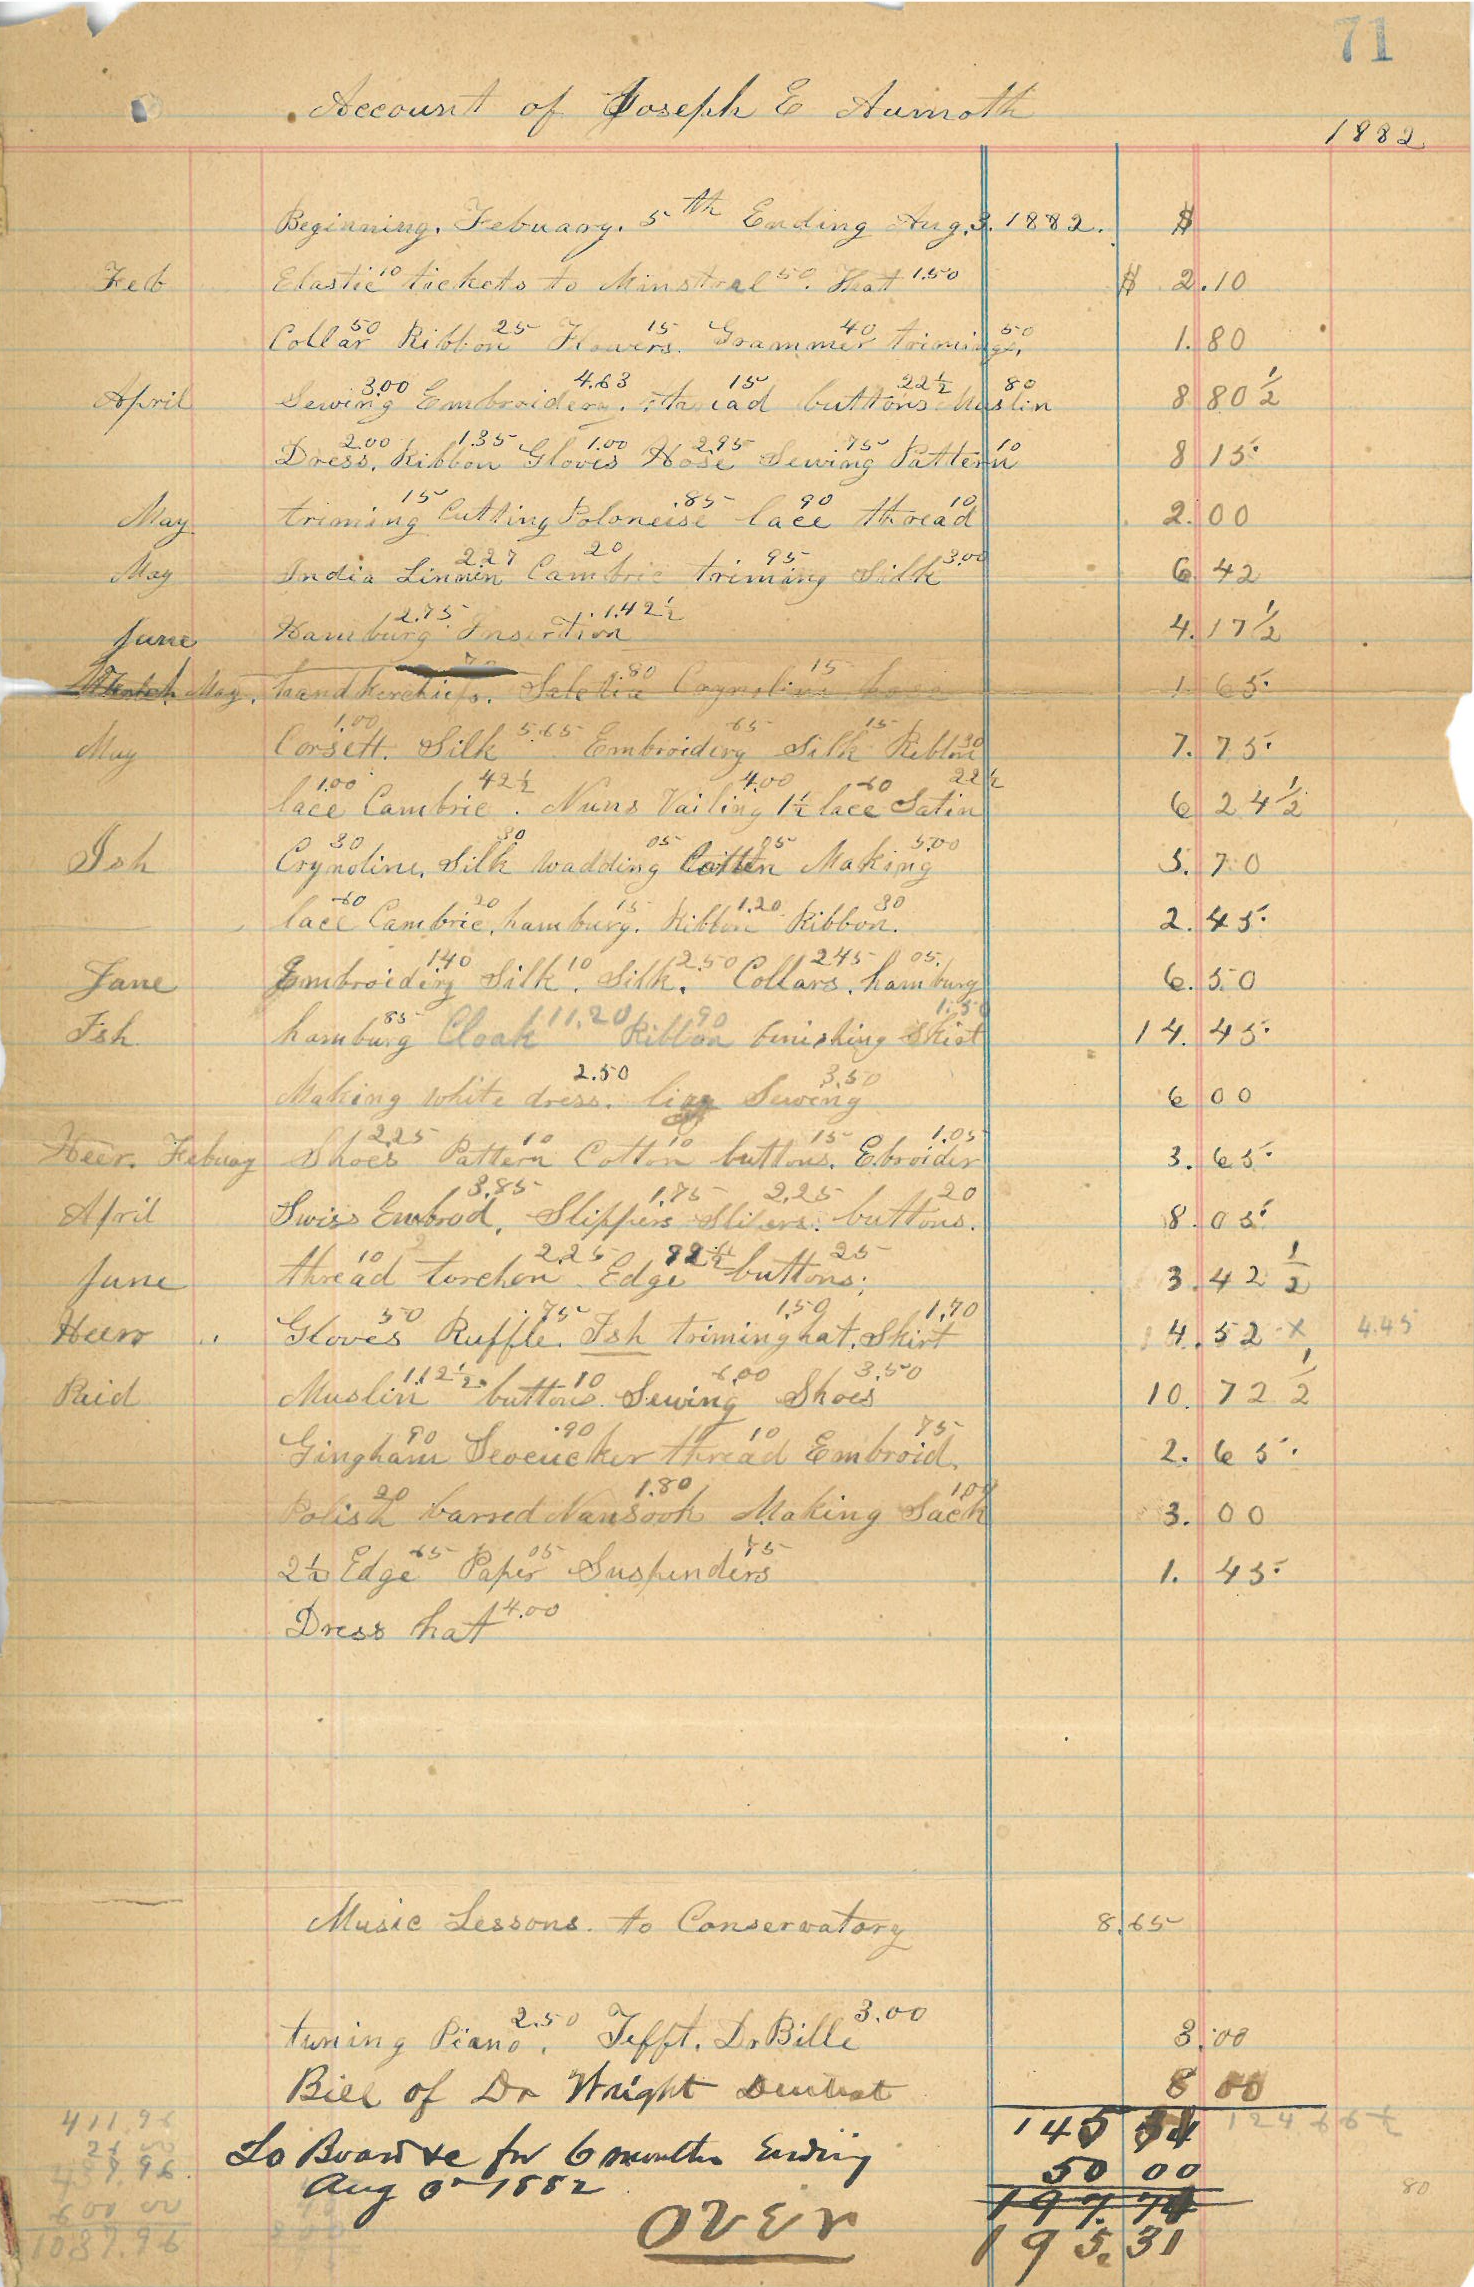 71
Account of Joseph E Aumoth
1882
Beginning. Febuary. 5th Ending Aug. 3. 1882. $
Feb Elastic 10 tickets to Minstrel 50. Hat 1.50 $ 2.10
Collar 50 Ribbon 25 Flowers 15. Grammer 40 trimings. 50 1.80
April Sewing 3.00 Embroidery. 4.63 thread 15 buttons 22½ Muslin 80 8 80½
Dress. 2.00 Ribbon 1.35 Gloves 1.00 Hose 2.95 Sewing 75 Pattern 10 8 15
May triming 15 Cutting Poloneise .85 lace 90 thread 10 2.00
May India Linnen 2.27 Cambric 20 triming 95 Silk 3.00 6 42
June Hamburg 2.75 Insertion 1.42½ 4.17½
May. handkerchiefs. Siletia .80 Crynoline 15 1 65
May Corsett. 1.00 Silk 5.65 Embroidery 65 Silk 15 Ribbon 30 7.75
lace 1.00 Cambric 42½. Nuns Vailing 4.00 1½ lace 60 Satin 22½ 6 24½
Ish Crynoline. 30 Silk 30 wadding 05 Cotten 05 Making 5.00 5.70
lace 60 Cambric, 20 hamburg. 15 Ribbon 1.20 Ribbon. 30 2.45
June Embroidery 140 Silk 10. Silk. 2.50 Collars. 245 hamburg 05. 6.50
Ish. hamburg 85 Cloak 11.20 Ribbon 90 Finishing Skirt 1.50 14.45
Making white dress. 2.50 Sewing 3.50 6 00
Heer. Febuay Shoes 2.25 Pattern 10 Cotton 10 buttons. 15 Ebroider 1.05 3.65
April Swiss Embrod. 3.85 Slippers 1.75 Slipers. 2.25 buttons. 20 8.05
June thread 10 torchon 2.25 Edge 82½ buttons; 25 3.42½
Heers Gloves 50 Ruffle. 75 Ish triming hat. 1.50 Skirt 1.70 4.52 x 4.45
Paid Muslin 1.12½ buttons 10 Sewing 6.00 Shoes 3.50 10.72½
Gingham 90 Seoeucker .90 thread 10 Embroid. 75 2.65
Polish 20 barred Nansook 1.80 Making Sack 1.00 3.00
2½ Edge 65 Paper 05 Suspenders 75 1.45
Dress hat 4.00
Music Lessons. to Conservatory 8.65
tuning Piano. 2.50 Tefft. Dr Bille 3.00 3.00
Bill of Dr Wright Dentist 8 00
145 124 66½
To Board &c for 6 months Ending 50 00
Aug 3 1882 197.74
80
over 195.31
411.96
600 00
1087.96